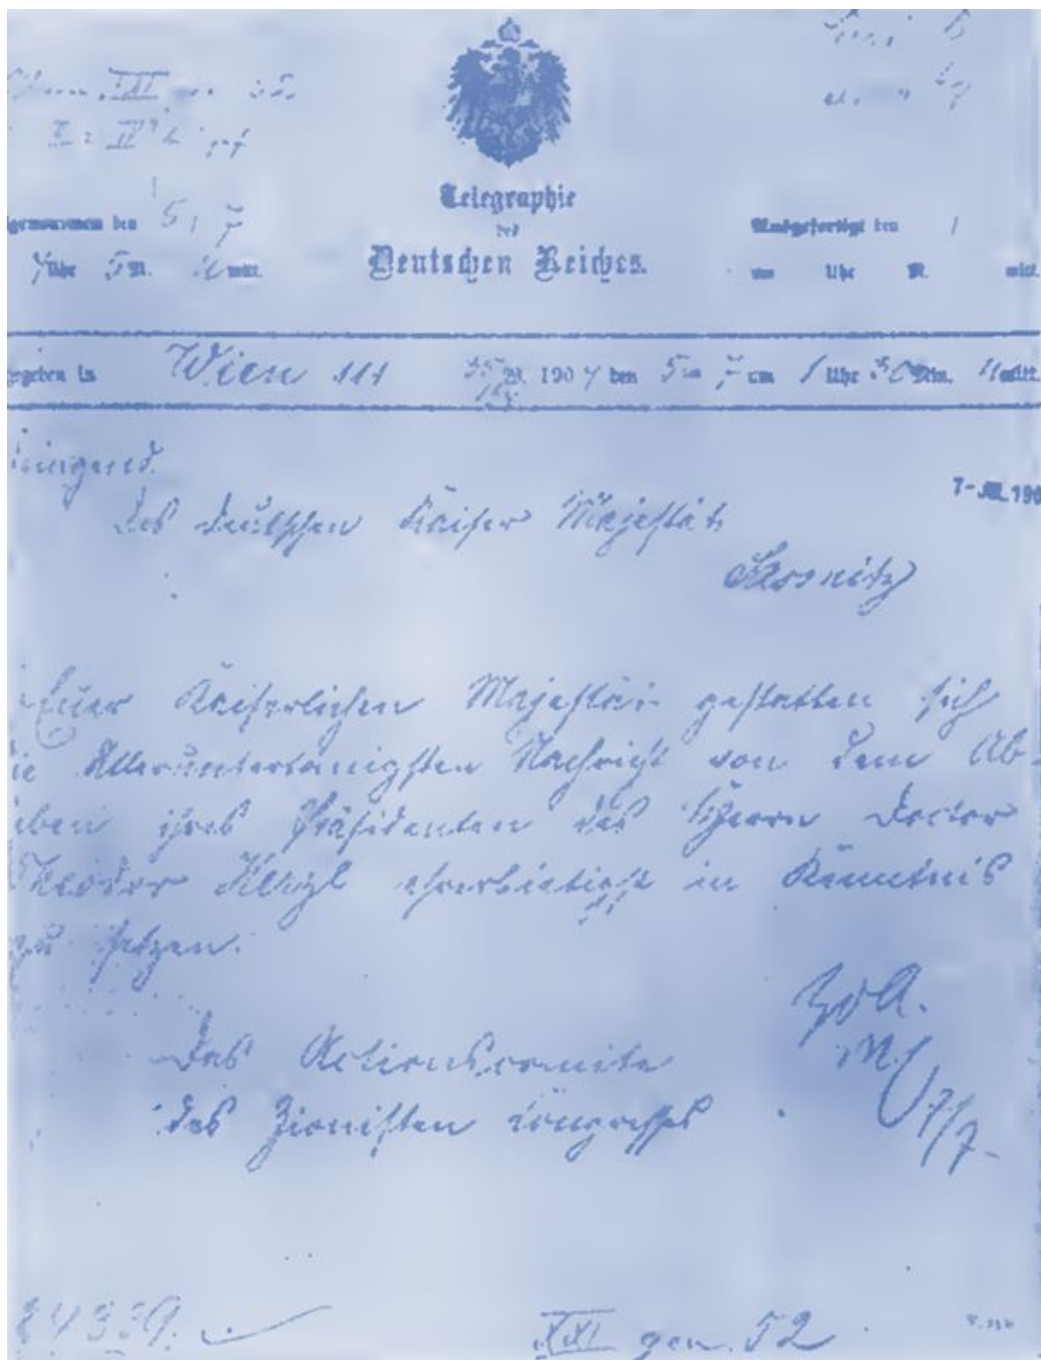 Telegraphie
des
Deutschen Reiches.
genommen den 5/7
7 Uhr 5 M. mitt.
Ausgefertigt den /
um Uhr M. mitt.
egeben in Wien 111 35 W. 1904 den 5ten 7 um 1 Uhr 50 Min. mitt.
7-JUL 190
Des deutschen Kaiser Majestät
Sassnitz
Euer Kaiserlichen Majestät gestatten sich
ie Alleruntertänigsten Nachricht von dem Ab-
eben ihres Präsidenten des Herrn Doctor
Theodor Herzl ehrerbietigst in Kenntnis
zu setzen.
Das Actionscomite
des Zionisten Congresses
ZdA.
7/7
XXI gen. 52